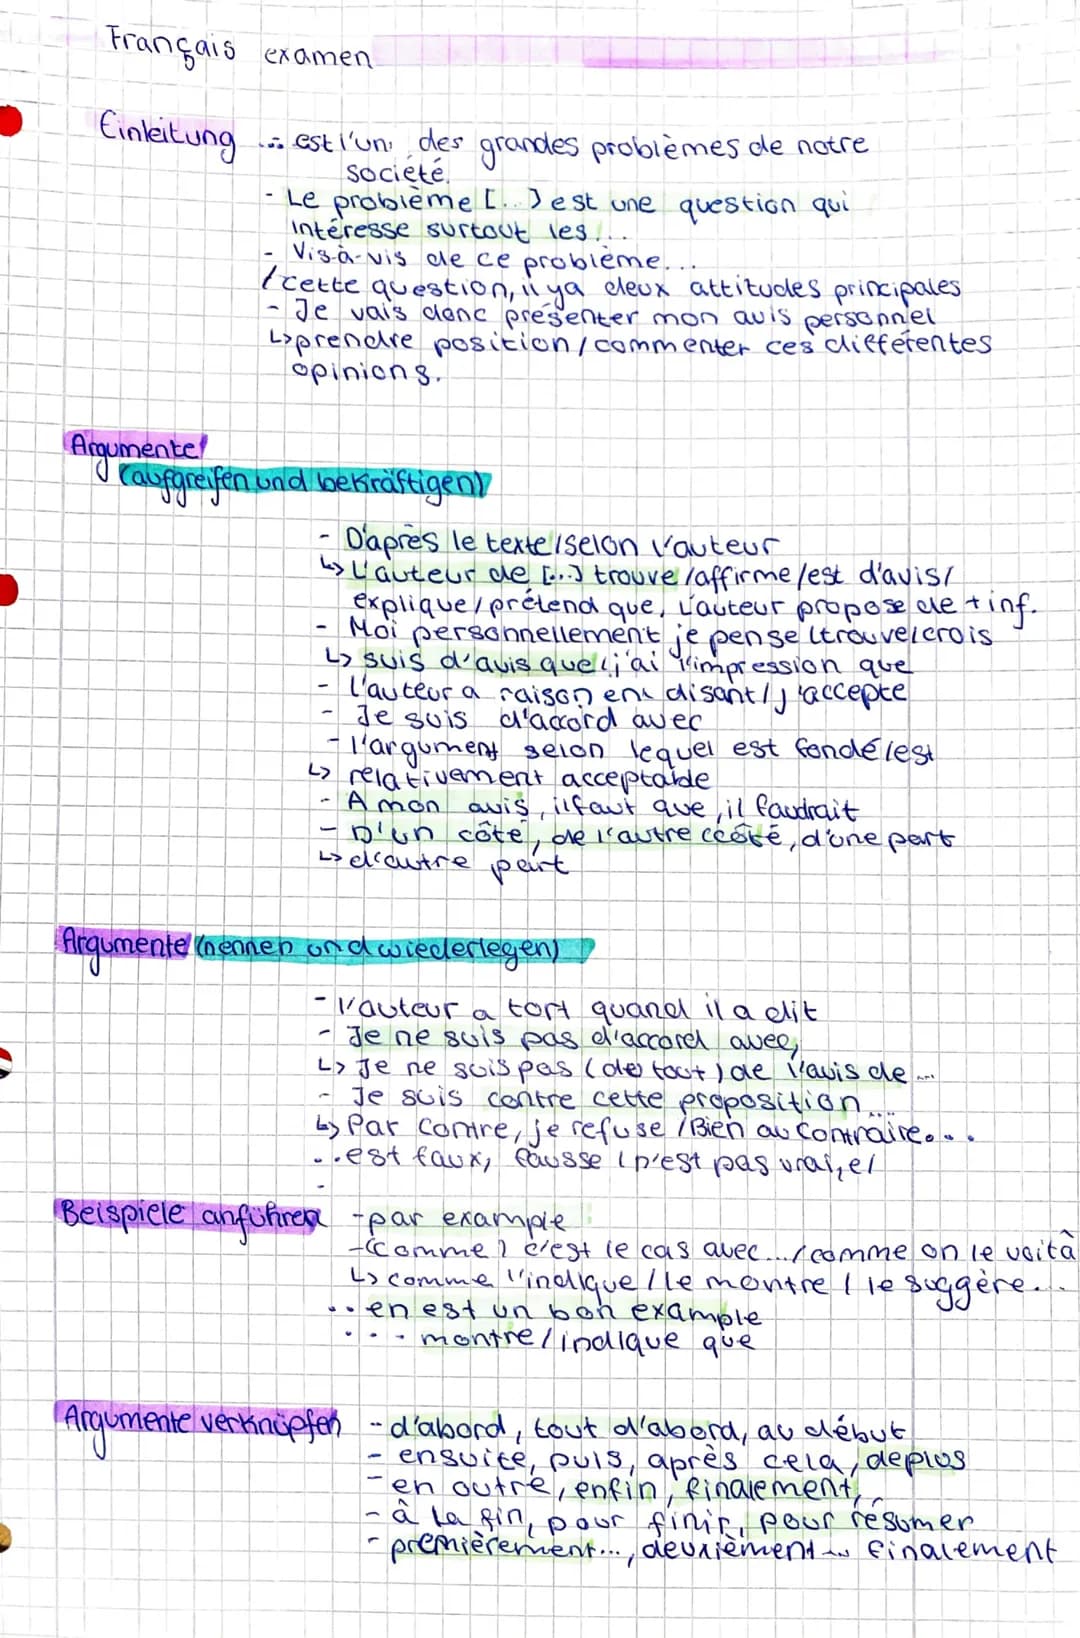 Français examen
Einleitung ... est l'un des grandes problèmes de notre
société.
- Le problème [...] est une question qui
intéresse surtout les...
- Vis-à-vis de ce problème...
/cette question, il ya deux attitudes principales
- Je vais donc présenter mon avis personnel
↳prendre position/commenter ces différentes
opinions.
Argumente
(aufgreifen und bekräftigen)
- D'après le texte/selon l'auteur
↳ L'auteur de [...] trouve/affirme/est d'avis/
explique/prétend que, L'auteur propose de + inf.
- Moi personnellement je pense/trouve/crois
↳ suis d'avis que/j'ai l'impression que
- l'auteur a raison en disant/j'accepte
- Je suis d'accord avec
- l'argument selon lequel est fondé/est
↳ relativement acceptable
- A mon avis, il faut que, il faudrait
- D'un côté, de l'autre côté, d'une part
↳ d'autre part
Argumente (nennen und wiederlegen)
- l'auteur a tort quand il a dit
- Je ne suis pas d'accord avec,
↳ Je ne suis pas (de tout) de l'avis de ...
- Je suis contre cette proposition...
↳ Par contre, je refuse /Bien au contraire...
...est faux, fausse (n'est pas vrai,e/
-
Beispiele anführen - par example
-(comme) c'est le cas avec.../comme on le voit à
↳ comme l'indique/le montre/le suggère...
...en est un bon example
... montre/indique que
Argumente verknüpfen - d'abord, tout d'abord, au début
- ensuite, puis, après cela, deplus
- en outre, enfin, finalement,
- à la fin, pour finir, pour résumer
- premièrement..., deuxièment... finalement